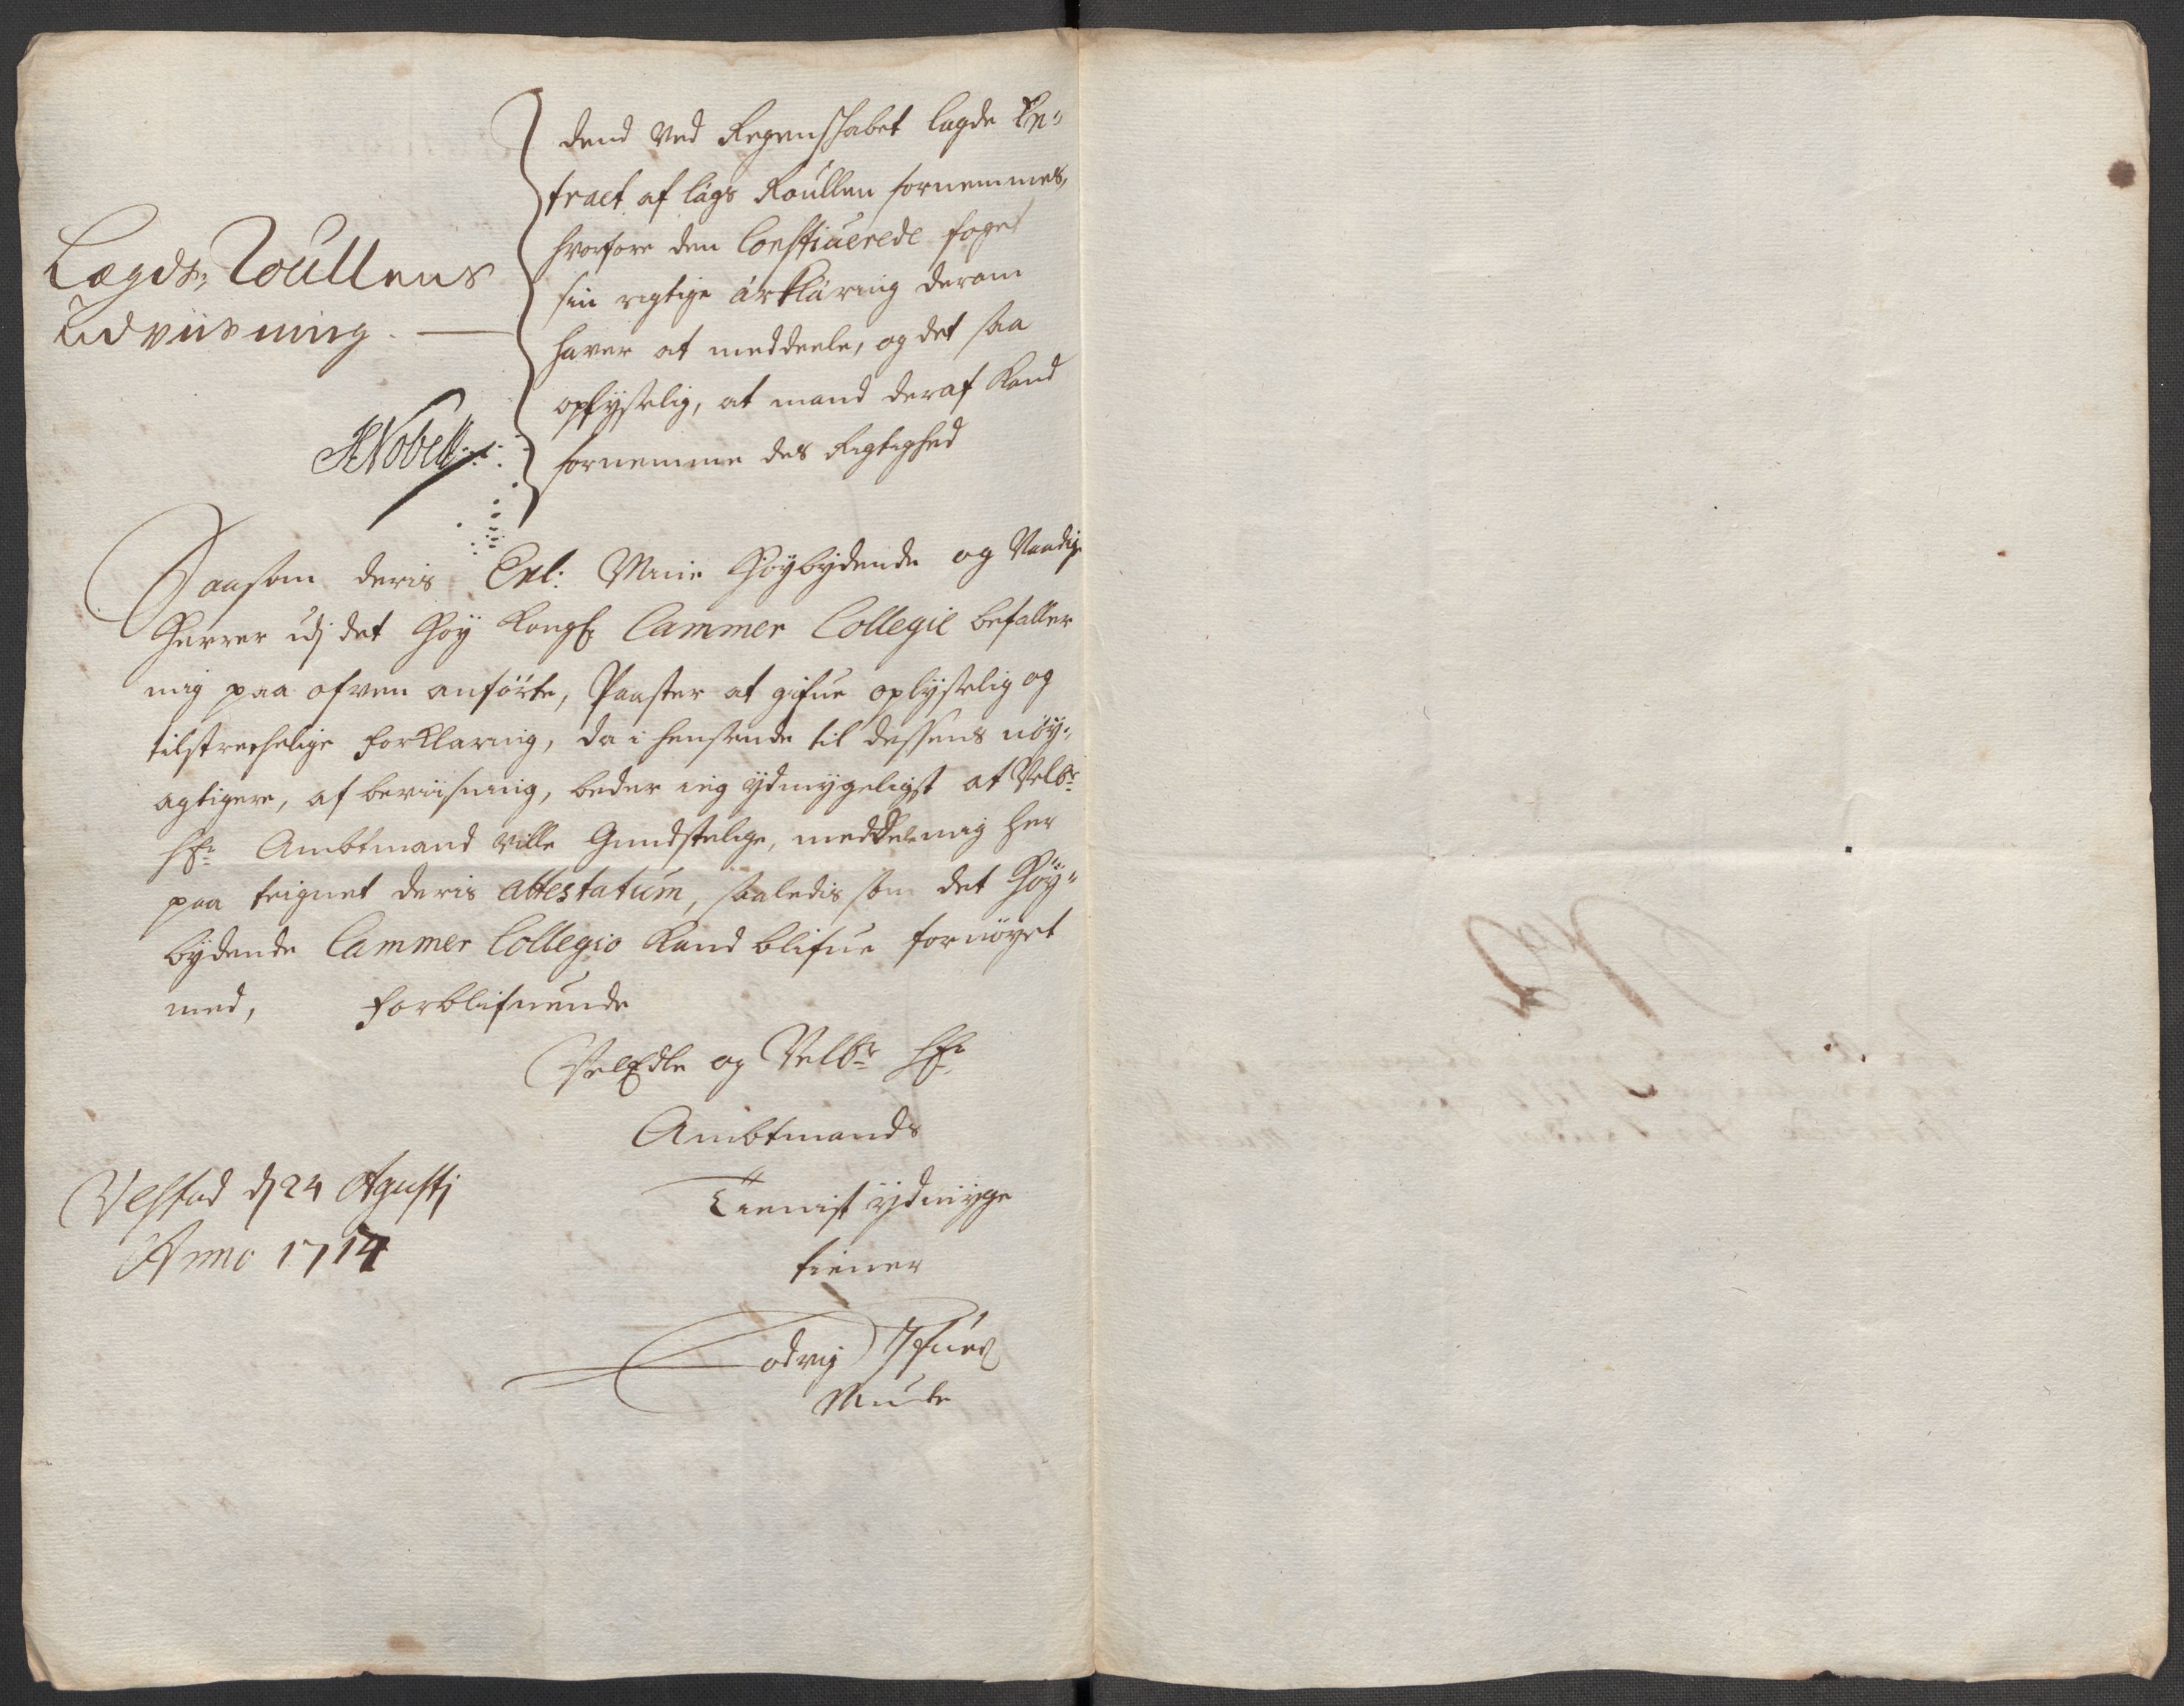 Lægds Roullens
Udviisning.
HNobell
dend ved Regenskabet lagde Ex¬
tract af lægs Roullen fornemmes,
hvorfore den Constiuerede foget
sin rigtige ærklæring derom
haver at meddeele, og det saa
oplyselig, at mand deraf Kand
fornemme des Rigtighed
Saasom deris Exl: Mine Høybydende og Naadige
Herrer udj det Høy Kongl. Cammer Collegie befaller
mig paa ofven anførte, Poster at gifue oplyselig og
tilstrechelige forklaring, da i henseende til dessens nøy¬
agtigere, af beviisning, beder ieg ydmygeligst at Velbr
Hr Ambtmand ville Gundstelige, meddele mig her
paa teignet deris attestatum, saaledis som det Høy¬
bydende Cammer Collegio Kand blifue fornøyet
med, forblifuende
VelEdle og Velbr Hr
Ambtmands
Tienist ydmyge
tiener
Lodvig
Munte
Velstad d 24 Agustj
Anno 1714